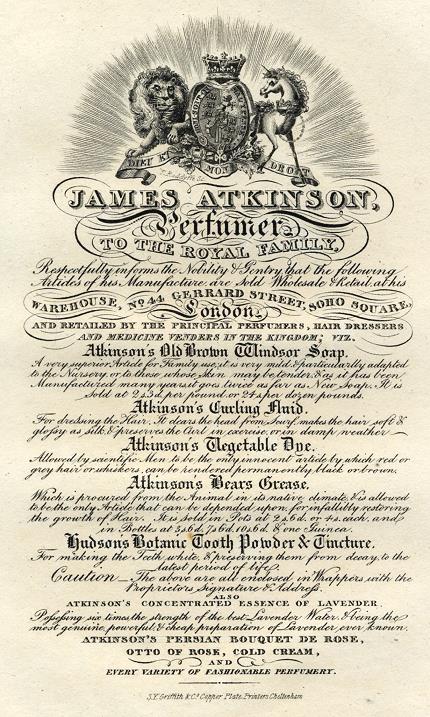 DIEU ET MON DROIT
JAMES ATKINSON,
Perfumer
TO THE ROYAL FAMILY,
Respectfully informs the Nobility & Gentry that the following
Articles of his Manufacture, are Sold Wholesale & Retail, at his
WAREHOUSE, No. 44 GERRARD STREET, SOHO SQUARE,
London,
AND RETAILED BY THE PRINCIPAL PERFUMERS, HAIR DRESSERS
AND MEDICINE VENDERS IN THE KINGDOM; VIZ.
Atkinson's Old Brown Windsor Soap.
A very superior Article for Family use, it is very mild & particularly adapted
to the Nursery, or to those whose skin may be tender, & as it has been
Manufactured many years it goes twice as far as New Soap. It is
Sold at 2s 3d. per pound, or 24s per dozen pounds.
Atkinson's Curling Fluid.
For dressing the Hair. It clears the head from Scurf, makes the hair soft &
glossy as silk, & preserves the Curl in exercise, or in damp weather
Atkinson's Vegetable Dye.
Allowed by scientific Men to be the only innocent article by which red or
grey hair or whiskers, can be rendered permanently black or brown.
Atkinson's Bears Grease.
Which is procured from the Animal in its native climate, & is allowed
to be the only Article that can be depended upon, for infallibly restoring
the growth of Hair. It is sold in Pots at 2s 6d. or 4s. each, and
in Bottles at 3s 6d, 7s 6d, 10s 6d & one Guinea.
Hudson's Botanic Tooth Powder & Tincture.
For making the Teeth white, & preserving them from decay, to the
latest period of life.
Caution – The above are all enclosed in Wrappers with the
Proprietors Signature & Address.
ALSO
ATKINSON'S CONCENTRATED ESSENCE OF LAVENDER
Possessing six times the strength of the best Lavender Water, & being the
most genuine, powerful & cheap preparation of Lavender ever known
ATKINSON'S PERSIAN BOUQUET DE ROSE,
OTTO OF ROSE, COLD CREAM,
AND
EVERY VARIETY OF FASHIONABLE PERFUMERY.
S.Y. Griffith & Co. Copper Plate Printers Cheltenham